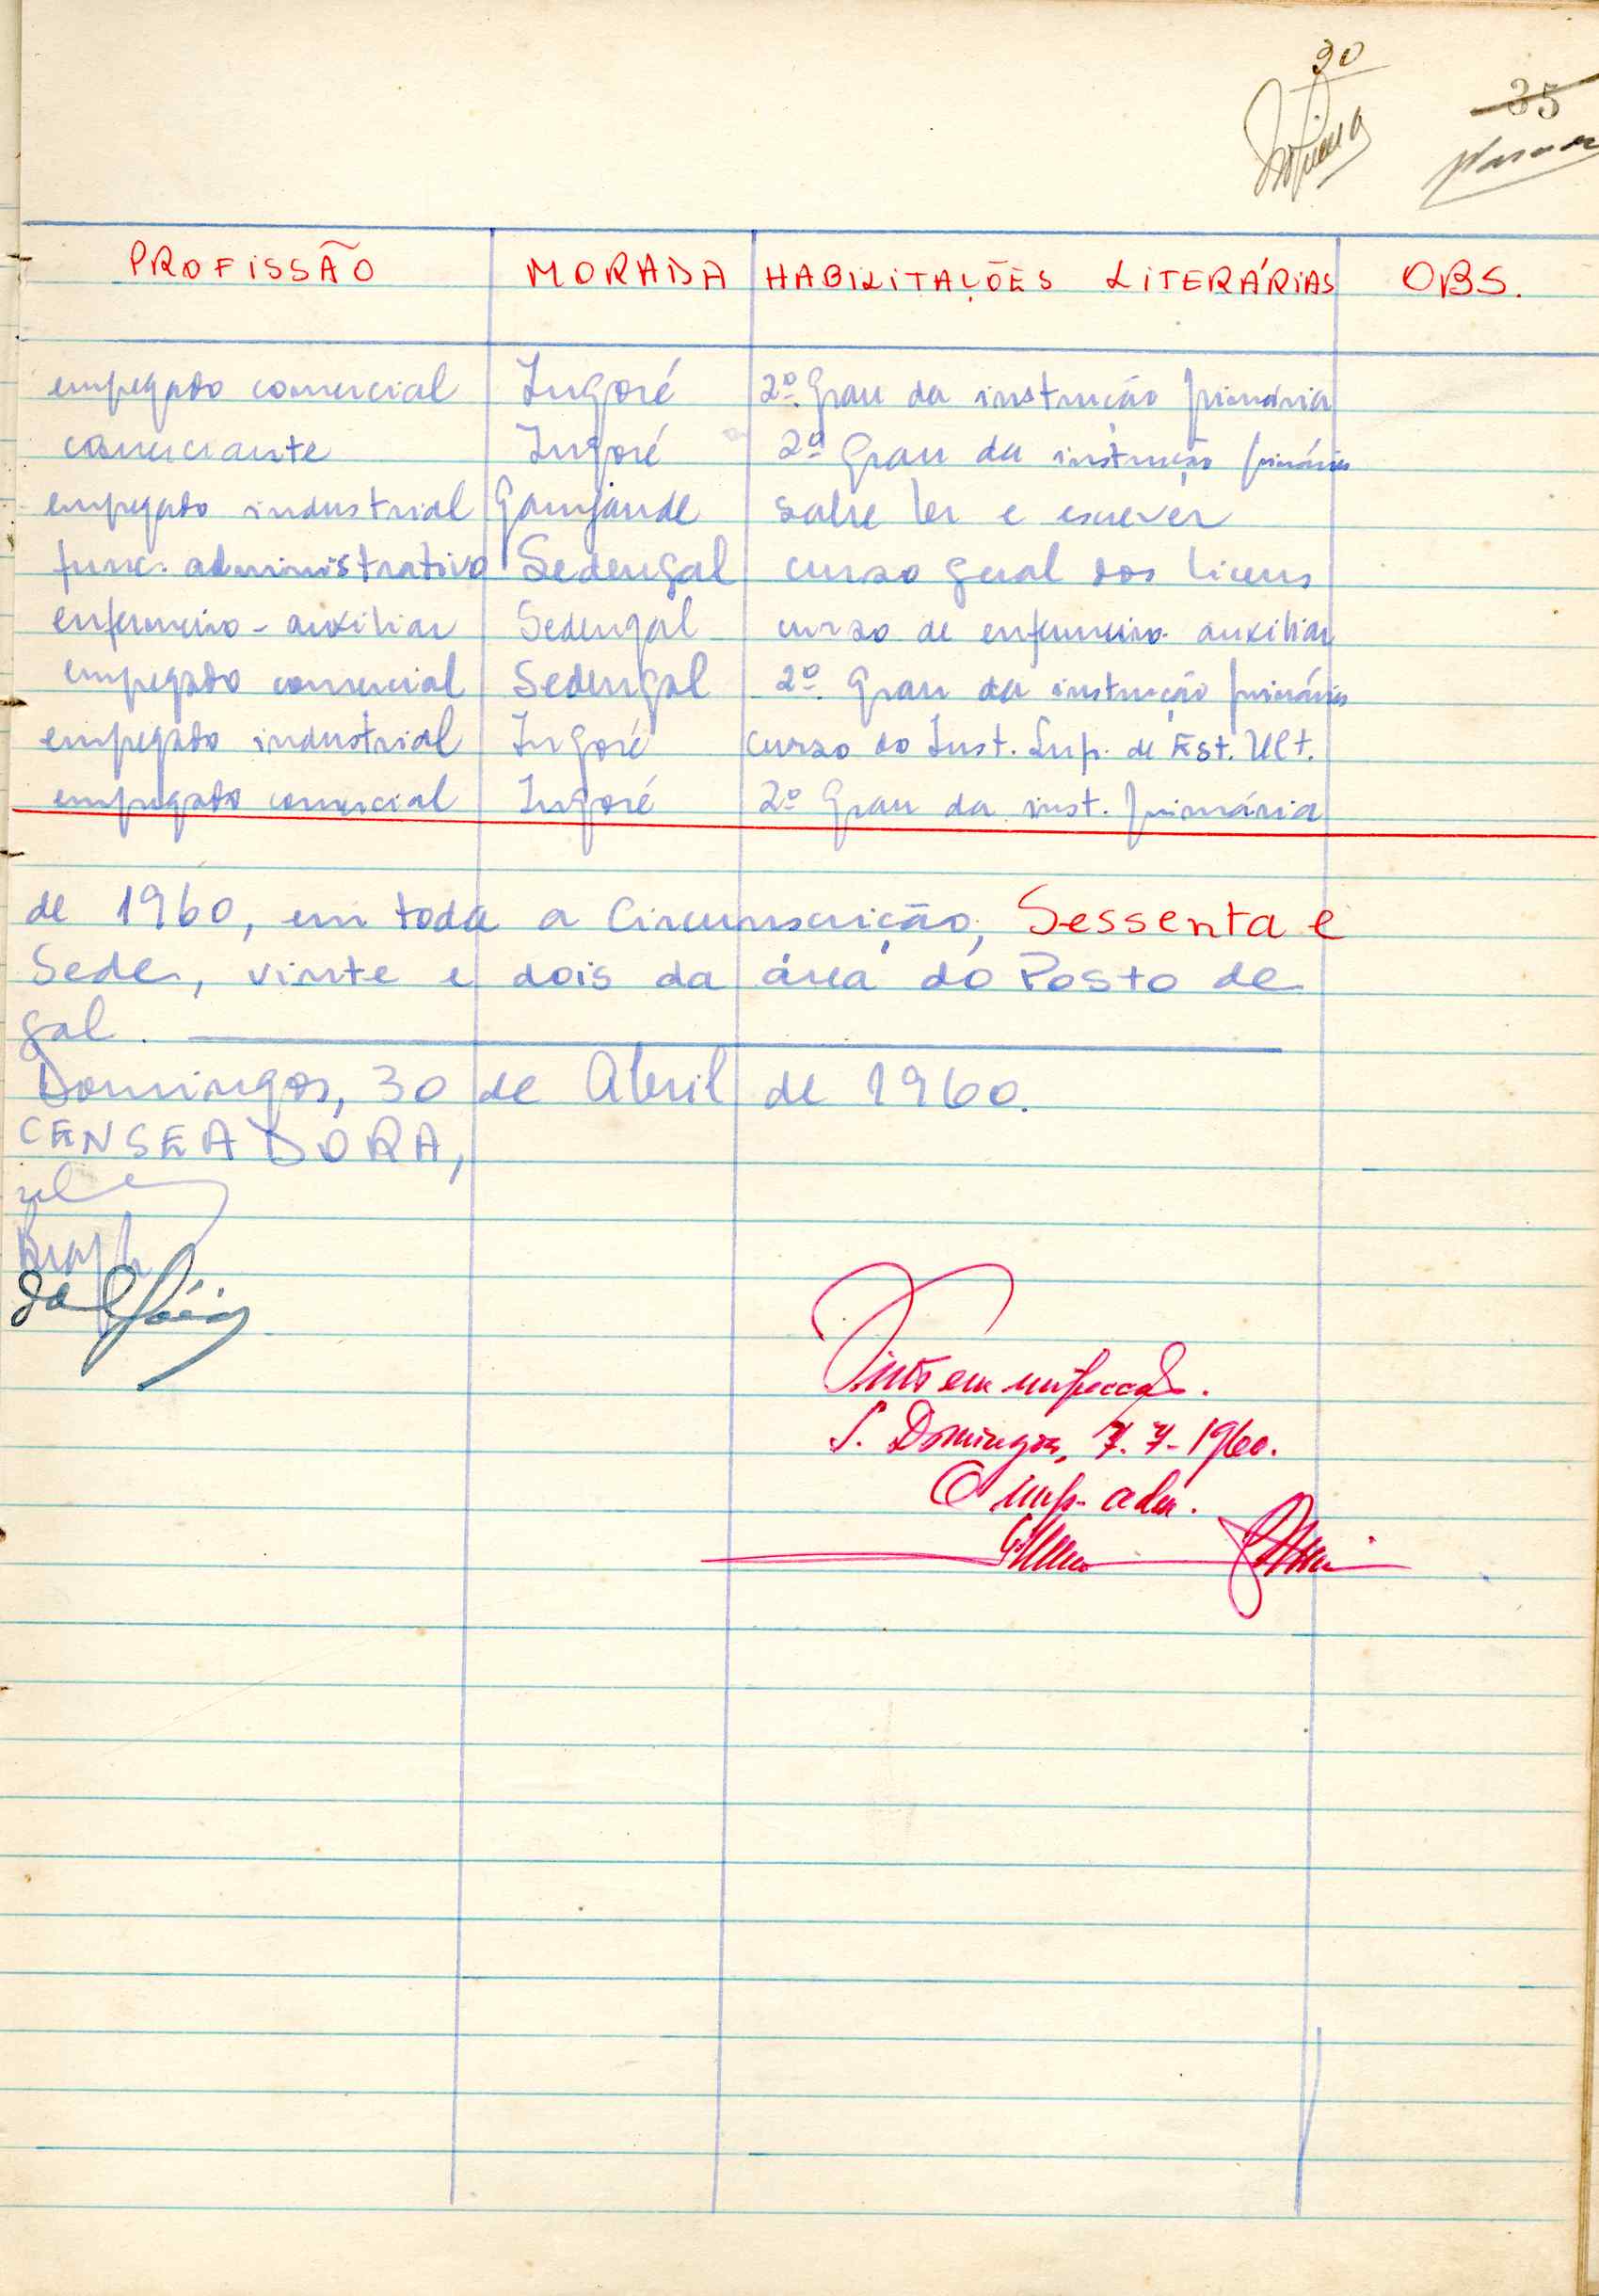 30
35
PROFISSÃO MORADA HABILITAÇÕES LITERÁRIAS OBS.
empegado comercial Ingoré 2º. Grau da instrução primária
comerciante Ingoré 2º Grau da instrução primária
empegado industrial Gamjande sabe ler e escrever
func. administrativo Sedengal curso geral dos liceus
enfermeiro-auxiliar Sedengal curso de enfermeiro-auxiliar
empegado comercial Sedengal 2º. Grau da instrução primária
empegado industrial Ingoré curso do Inst. Sup. de Est. Ult.
empegado comercial Ingoré 2º Grau da inst. primária
de 1960, em toda a Circunscrição, Sessenta e
Sede, vinte e dois da área do Posto de
gal.
Domingos, 30 de Abril de 1960.
CENSEADORA,
Visto em inspecção.
S. Domingos, 7-7-1960.
O insp. adm.